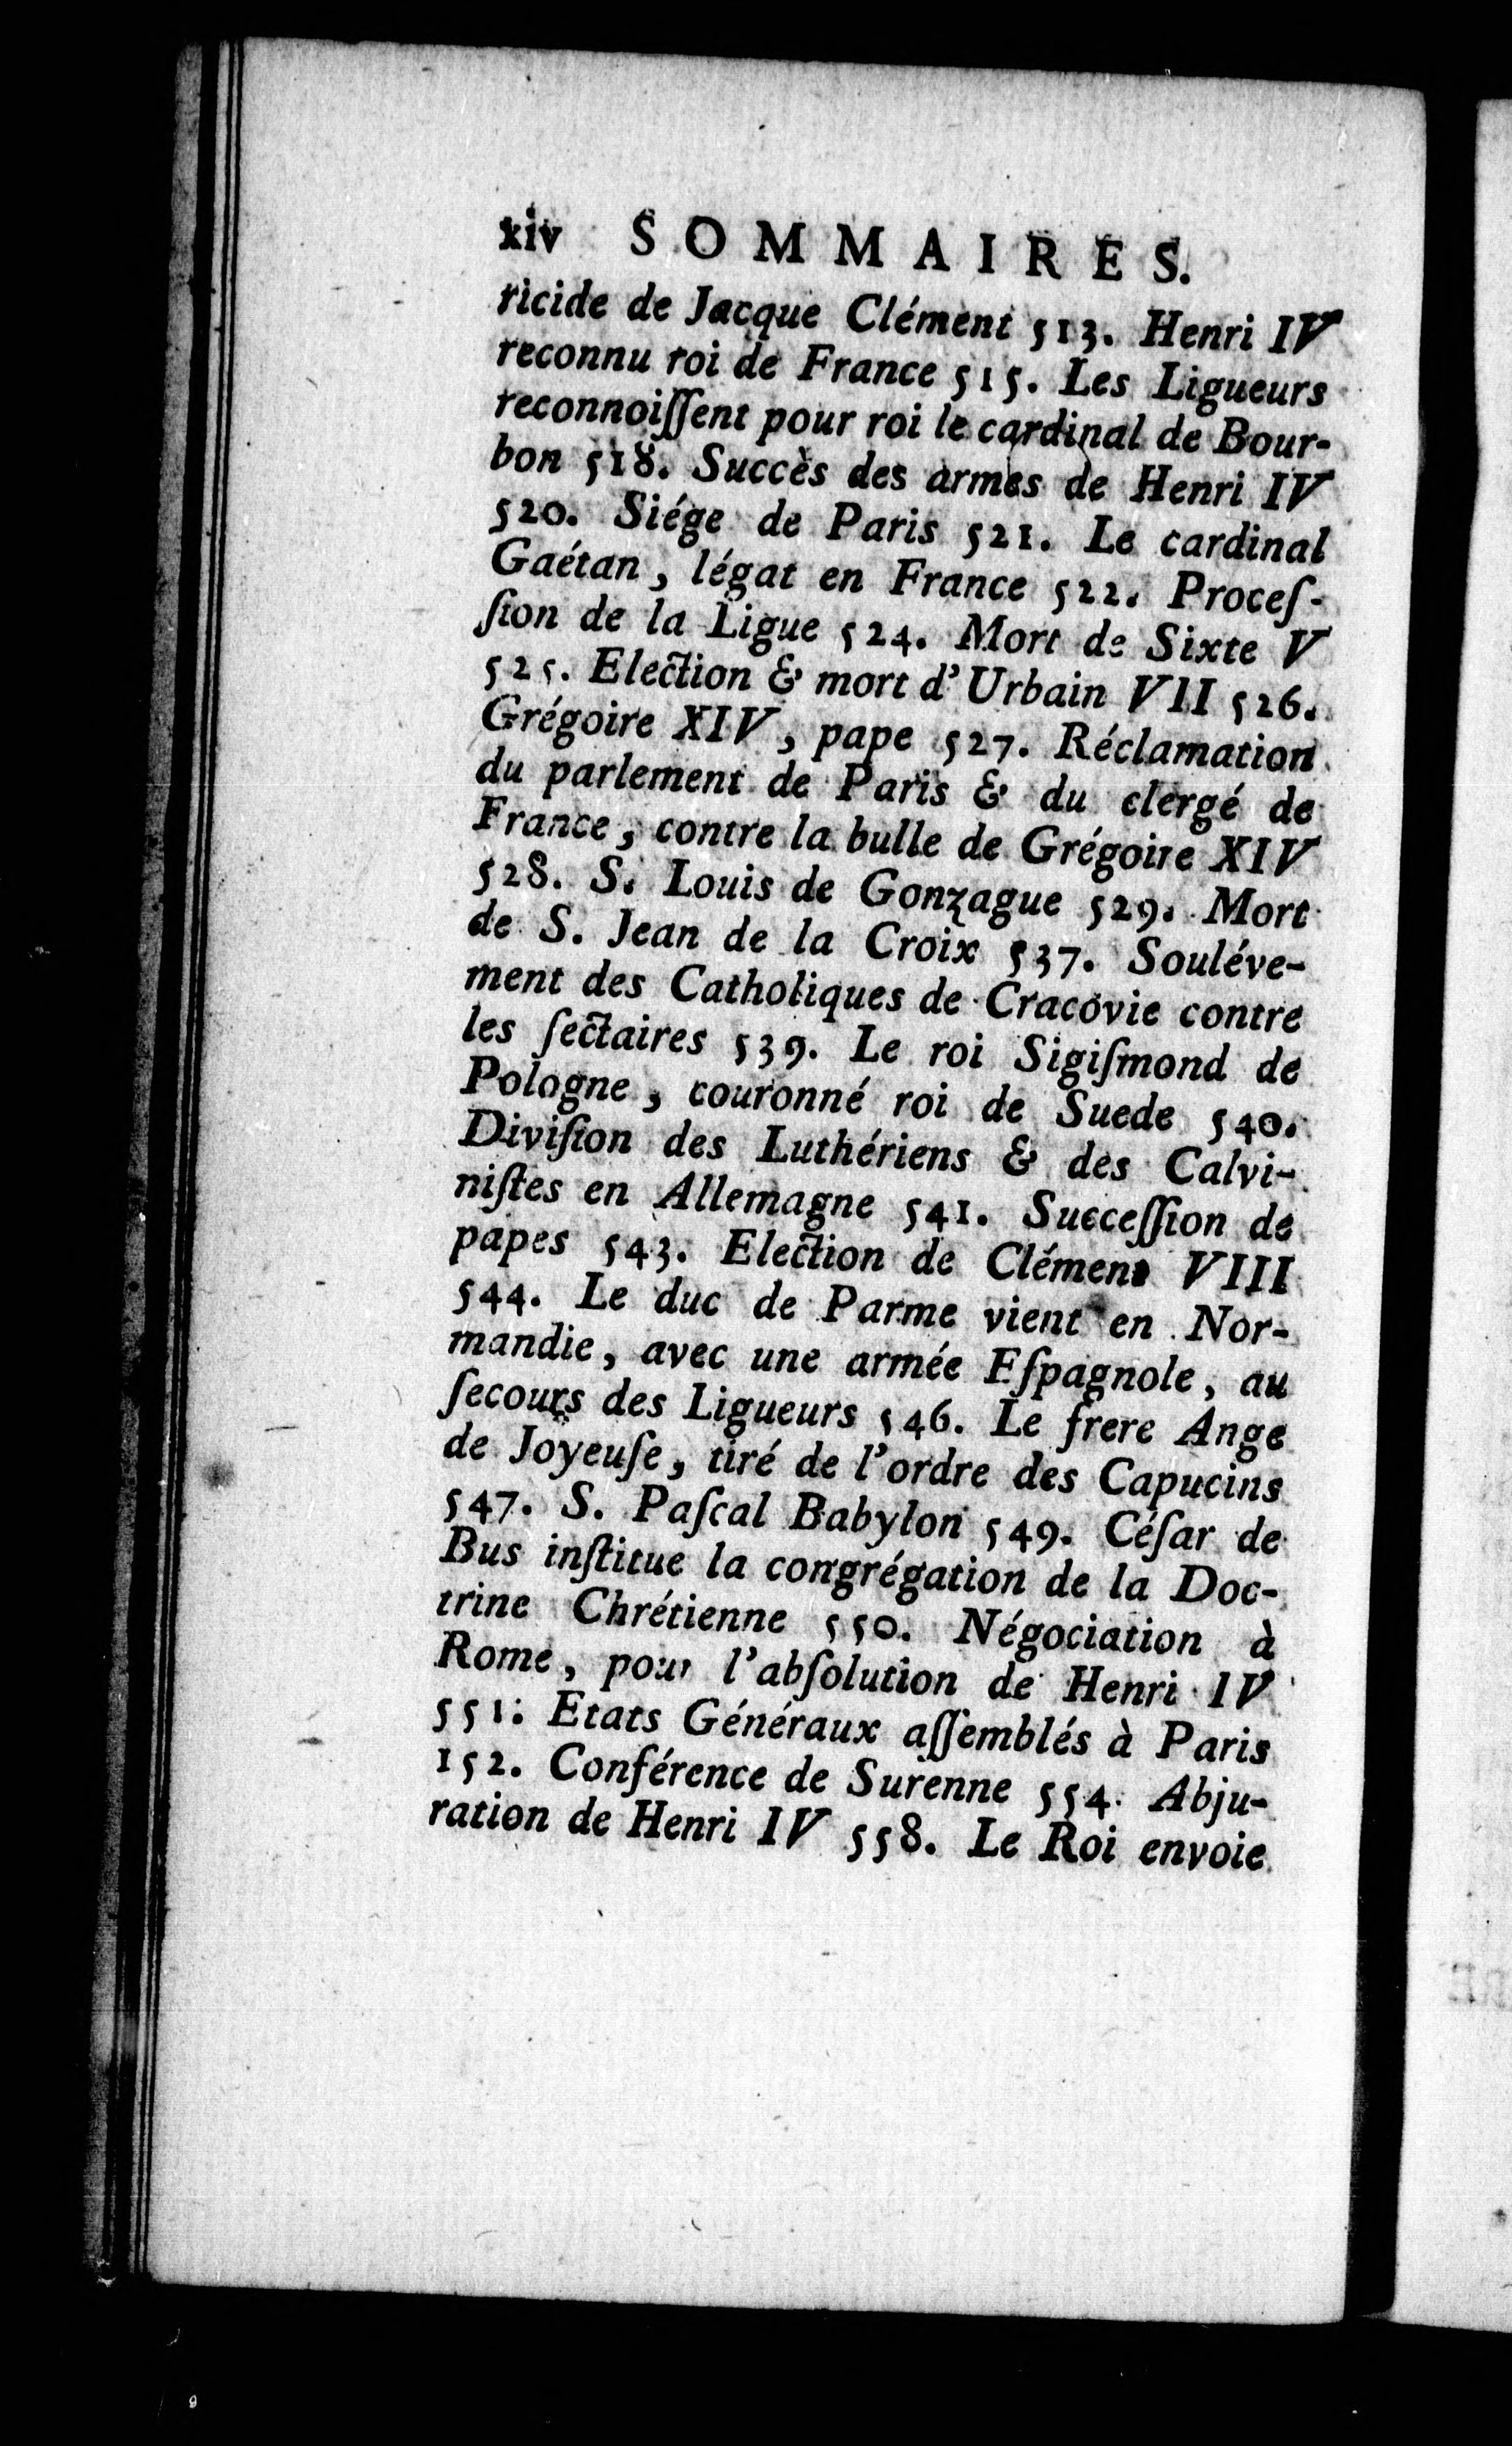 xiv SOMMAIRES.
ricide de Jacque Clément 513. Henri IV
reconnu roi de France 515. Les Ligueurs
reconnoiſſent pour roi le cardinal de Bour-
bon 518. Succès des armes de Henri IV
520. Siége de Paris 521. Le cardinal
Gaétan, légat en France 522. Proceſ-
ſion de la Ligue 524. Mort de Sixte V
525. Election & mort d'Urbain VII 526.
Grégoire XIV, pape 527. Réclamation
du parlement de Paris & du clergé de
France, contre la bulle de Grégoire XIV
528. S. Louis de Gonzague 529. Mort
de S. Jean de la Croix 537. Souléve-
ment des Catholiques de Cracovie contre
les ſectaires 539. Le roi Sigiſmond de
Pologne, couronné roi de Suede 540.
Diviſion des Luthériens & des Calvi-
niſtes en Allemagne 541. Succeſſion de
papes 543. Election de Clément VIII
544. Le duc de Parme vient en Nor-
mandie, avec une armée Eſpagnole, au
ſecours des Ligueurs 546. Le frere Ange
de Joyeuſe, tiré de l'ordre des Capucins
547. S. Paſcal Babylon 549. Céſar de
Bus inſtitue la congrégation de la Doc-
trine Chrétienne 550. Négociation à
Rome, pour l'abſolution de Henri IV
551. Etats Généraux aſſemblés à Paris
152. Conférence de Surenne 554. Abju-
ration de Henri IV 558. Le Roi envoie